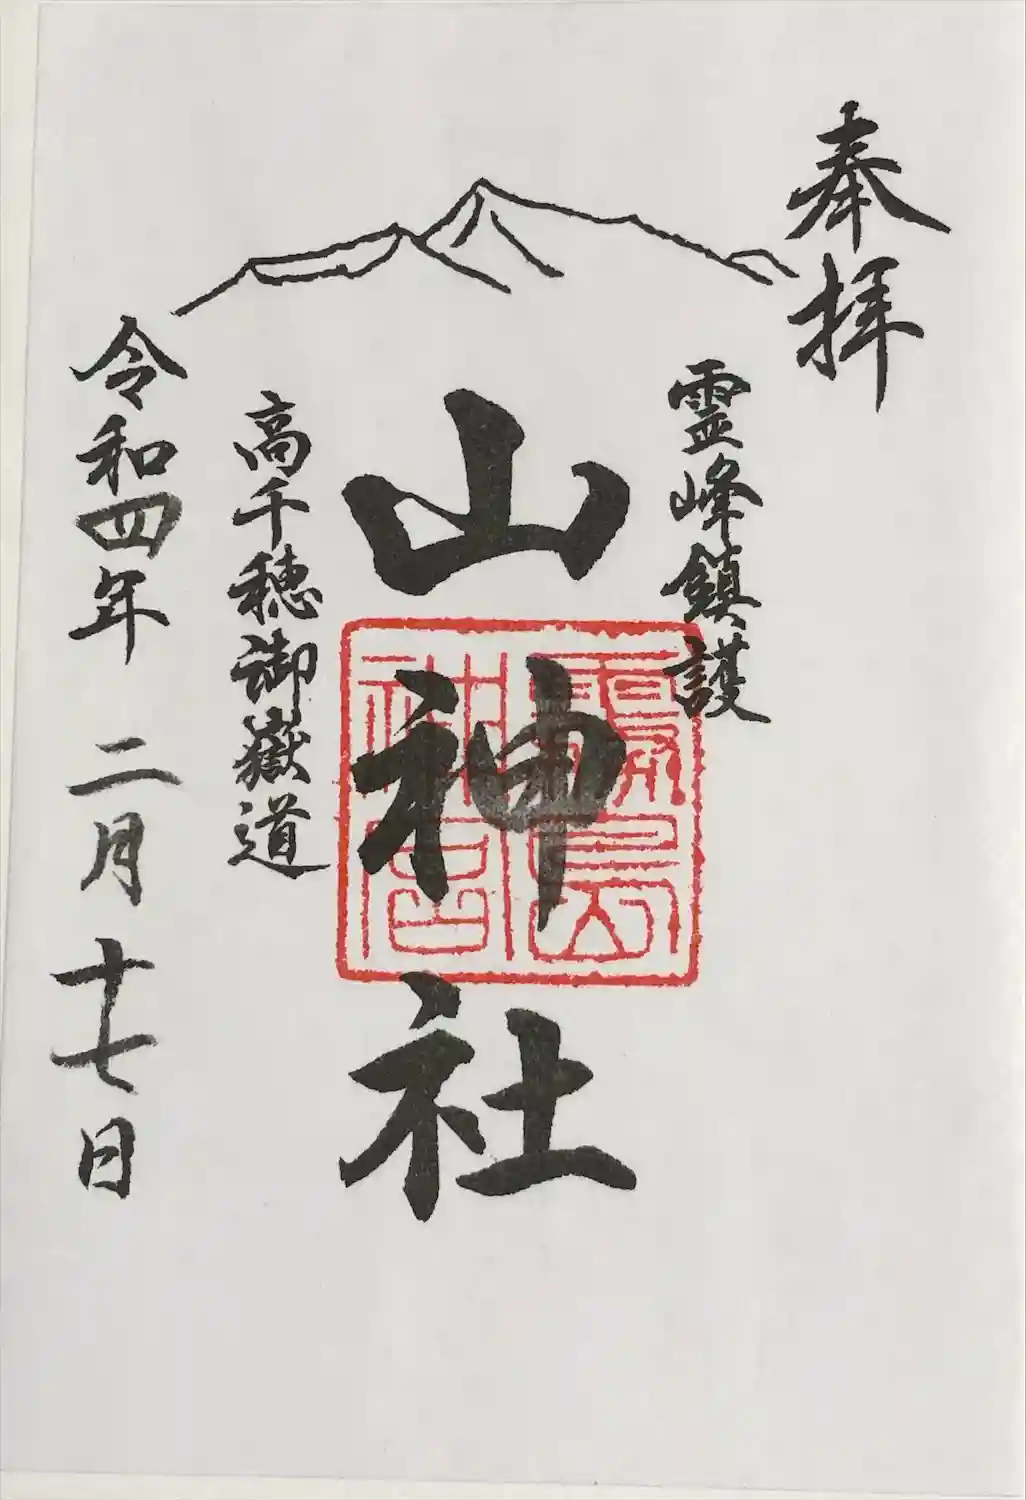 奉拝
霊峰鎮護
山神社
霧島
神宮
高千穂御嶽道
令和四年 二月 十七日